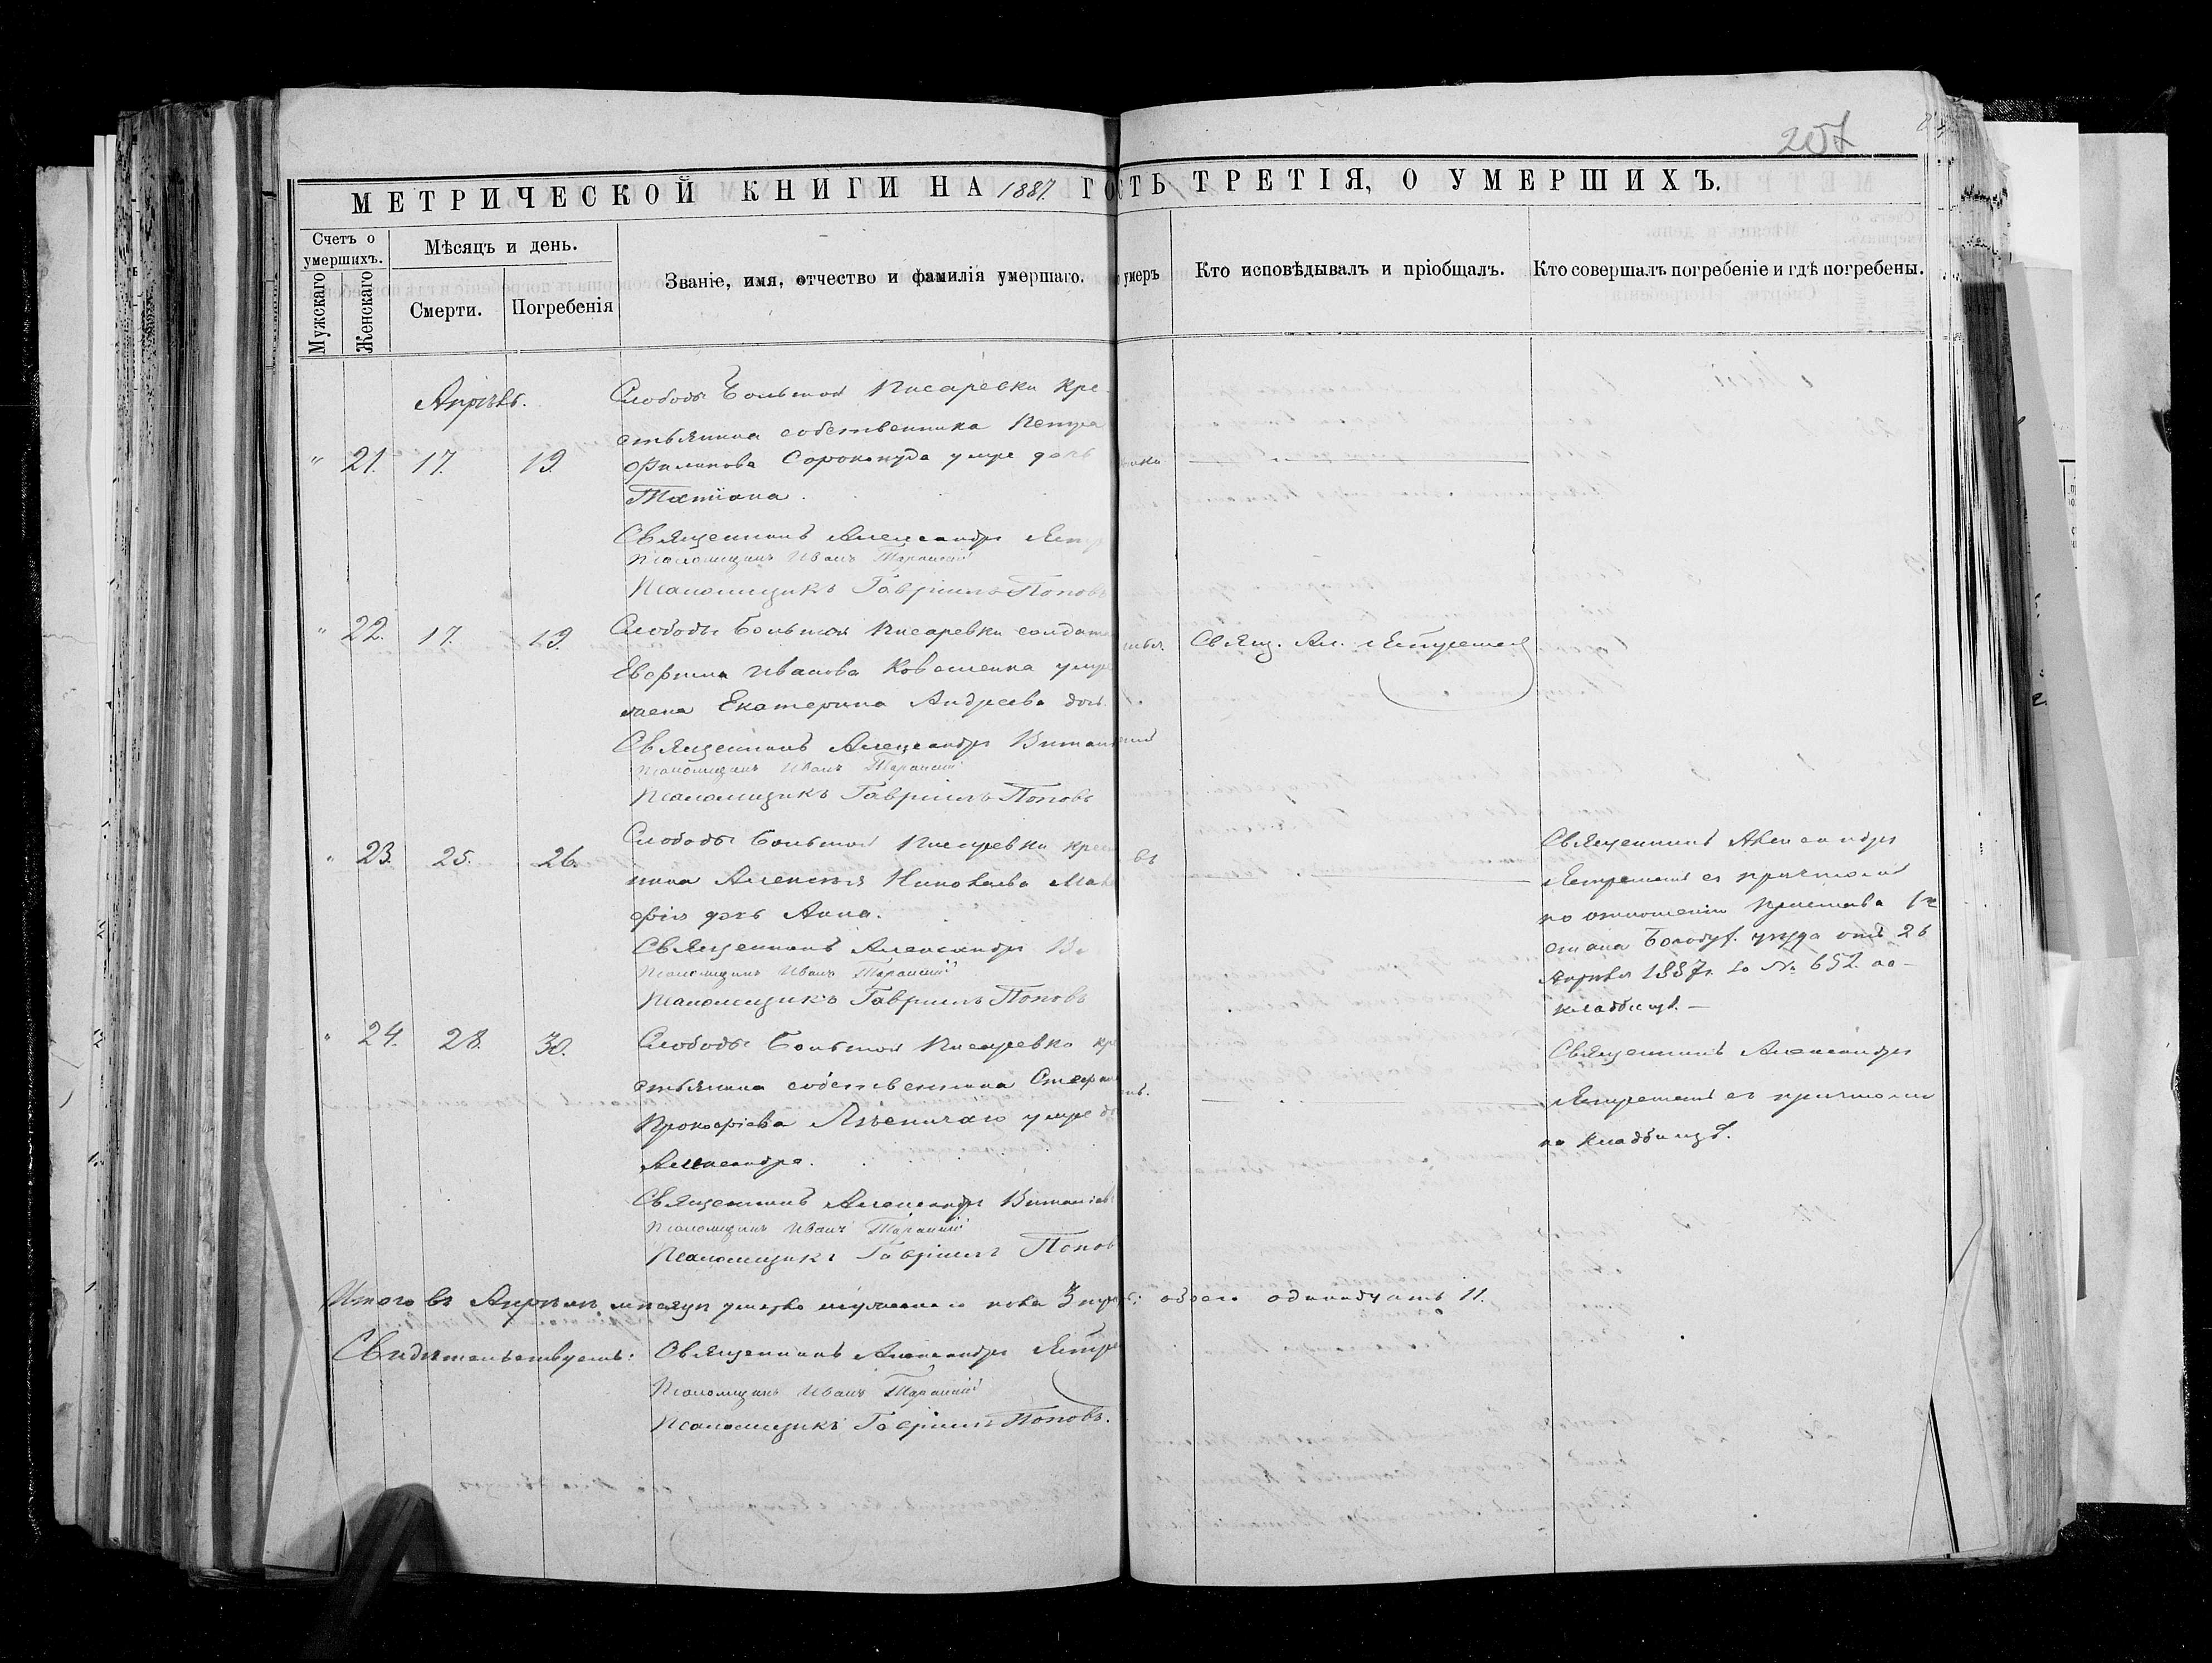 207
МЕТРИЧЕСКОЙ КНИГИ НА 1887. ГО
СТЬ ТРЕТІЯ, О УМЕРШИХЪ.
Счетъ о умершихъ.
Мужскаго
Женскаго
Мѣсяцъ и день.
Смерти.
Погребенія
Званіе, имя, отчество и фамилія умершаго.
умеръ
Кто исповѣдывалъ и пріобщалъ.
Кто совершалъ погребеніе и гдѣ погребены.
Апрѣль.
" 21. 17. 19.
Слободы Большой Писаревки кре-
стьянина собственника Петра
Филипова Сорокопуда умре дочь
Татіана.
Священникъ Александръ
Псаломщикъ Иванъ
Псаломщикъ Гавріилъ Поповъ
" 22. 17. 19.
Слободы Большой Писаревки солдат
Иванова умре
Екатерина Андреева дочь.
Священникъ Александръ
Псаломщикъ Иванъ
Псаломщикъ Гавріилъ Поповъ
Свящ. Ал.
" 23. 25. 26.
Слободы Большой Писаревки крест
нина Алексѣя Николаева
дочь Анна.
Священникъ Александръ
Псаломщикъ Иванъ
Псаломщикъ Гавріилъ Поповъ
въ
Священникъ Александръ
съ причтомъ
по отношенію Пристава 1го
стана Богодух. уѣзда отъ 26
Апрѣля 1887 г. за № 652. на
кладбищѣ. —
" 24. 28. 30.
Слободы Большой Писаревки кр
стьянина собственника Стефана
Прокофіева умре до
Александра.
Священникъ Александръ
Псаломщикъ Иванъ
Псаломщикъ Гавріилъ Поповъ
Священникъ Александръ
съ причтомъ
на кладбищѣ.
Итого въ Апрѣлѣ мѣсяцѣ умерло мужескаго пола 3 обоего одинадцать 11.
Свидѣтельствуемъ: Священникъ Александръ
Псаломщикъ Иванъ
Псаломщикъ Гавріилъ Поповъ.